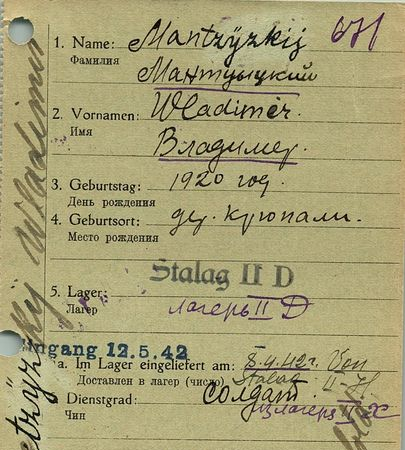 1. Name: Mantzÿzkij 671
Фамилия Мантцыцкий
2. Vornamen: Wladimir.
Имя Владимер.
3. Geburtstag: 1920 год.
День рождения
4. Geburtsort: дер. Крюпали.
Место рождения
Stalag II D
5. Lager:
Лагерь лагерь II D
ingang 12.5.42
a. Im Lager eingeliefert am: 8.4.42г. Von
Доставлен в лагерь (число) Stalag II-H
Dienstgrad: солдат.
Чин из лагеря
Wladimir